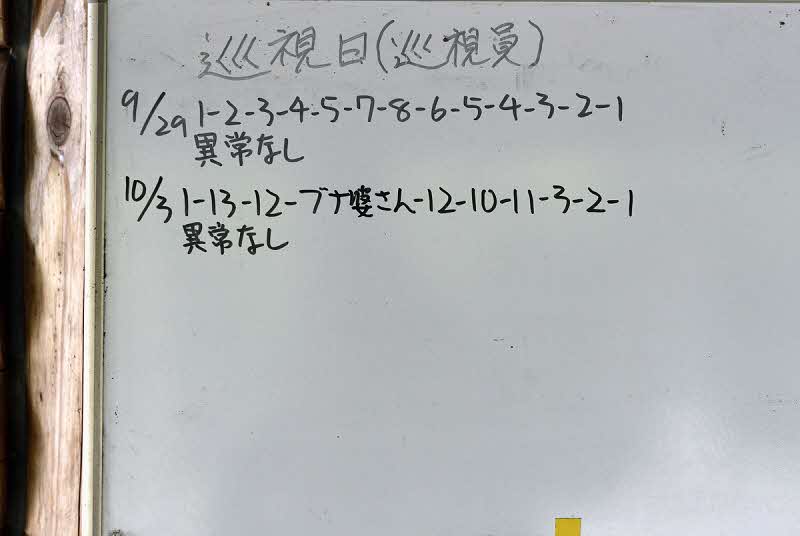 巡視日(巡視員)
9/29 1-2-3-4-5-7-8-6-5-4-3-2-1
異常なし
10/3 1-13-12-ブナ婆さん-12-10-11-3-2-1
異常なし